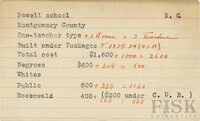 Powell school N. C.
Montgomery County
One-teacher type +1 Room = 2 Teacher
Built under Tuskegee
Total cost $1,600+1000 = 2600
Negroes $400+500 = 900
Whites
Public 800+350 = 1150
Rosenwald 400 ($200 under C. U. B.)
FISK
UNIVERSITY